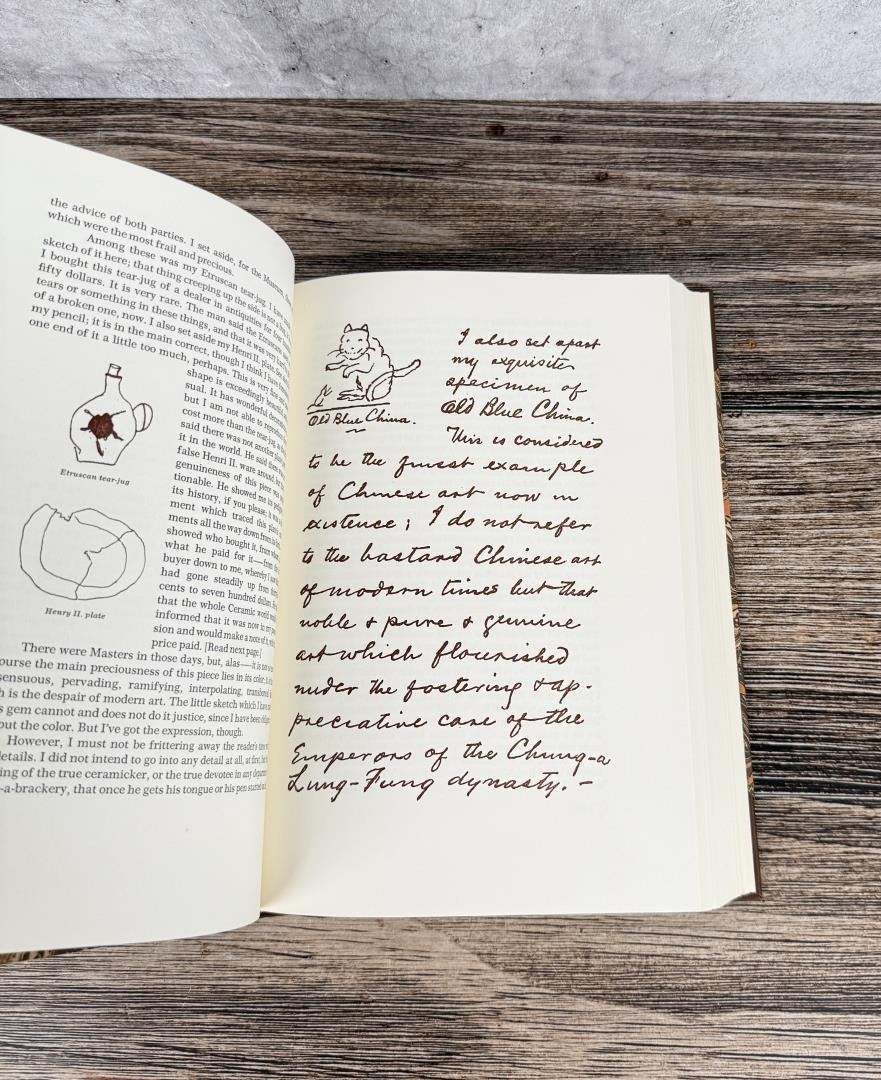 the advice of both parties. I set aside, for the Museum,
which were the most frail and precious.
Among these was my Etruscan tear-jug. I have
sketch of it here; that thing creeping up the side is not a
I bought this tear-jug of a dealer in antiquities for four
fifty dollars. It is very rare. The man said the Etruscans
tears or something in these things, and that it was very
of a broken one, now. I also set aside my Henri II. plate.
my pencil; it is in the main correct, though I think I have
one end of it a little too much, perhaps. This is very fine
shape is exceedingly
sual. It has wonderful
but I am not able to
cost more than the tear-jug,
said there was not another
it in the world. He said there
false Henri II. ware around, but
genuineness of this piece was
tionable. He showed me its
its history, if you please; it was
ment which traced this
ments all the way down from its
showed who bought it, from whom,
what he paid for it—from the
buyer down to me, whereby I saw
had gone steadily up from
cents to seven hundred dollars. He
that the whole Ceramic world
informed that it was now in my
sion and would make a note of it, with
price paid. [Read next page.]
Etruscan tear-jug
Henry II. plate
There were Masters in those days, but, alas—it is not
ourse the main preciousness of this piece lies in its color; it is
sensuous, pervading, ramifying, interpolating,
h is the despair of modern art. The little sketch which I have
s gem cannot and does not do it justice, since I have been
out the color. But I've got the expression, though.
However, I must not be frittering away the reader's time
details. I did not intend to go into any detail at all, at first, but
ing of the true ceramicker, or the true devotee in any
-a-brackery, that once he gets his tongue or his pen started
Old Blue China.
I also set apart
my exquisite
specimen of
Old Blue China.
This is considered
to be the finest example
of Chinese art now in
existence; I do not refer
to the bastard Chinese art
of modern times but that
noble & pure & genuine
art which flourished
under the fostering & ap-
preciative care of the
Emperors of the Chung-a
Lung-Fung dynasty. –